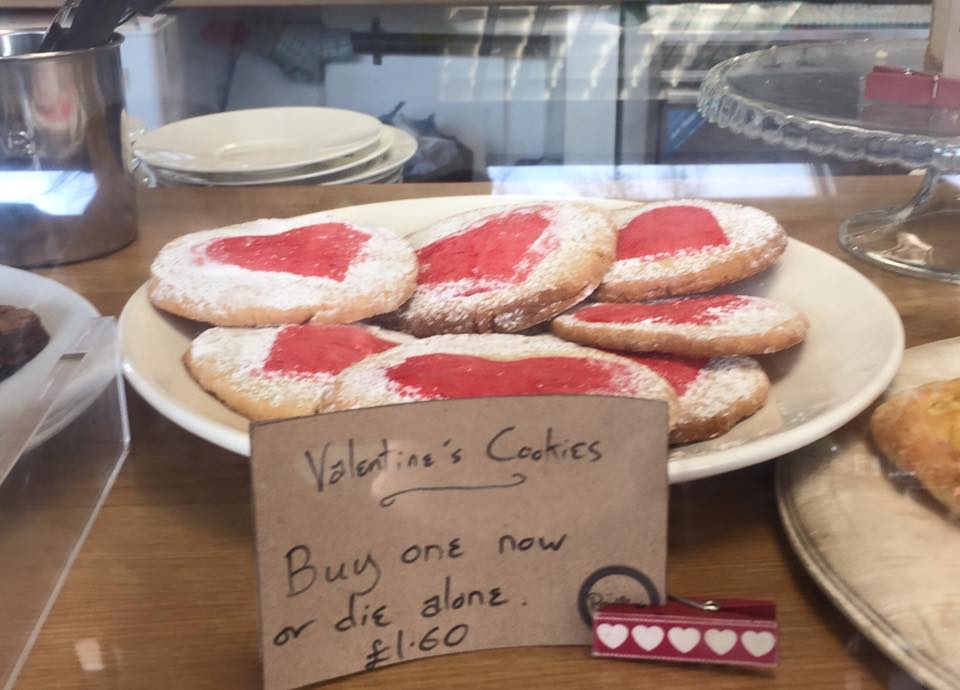 Valentine's Cookies
Buy one now
or die alone.
£1.60